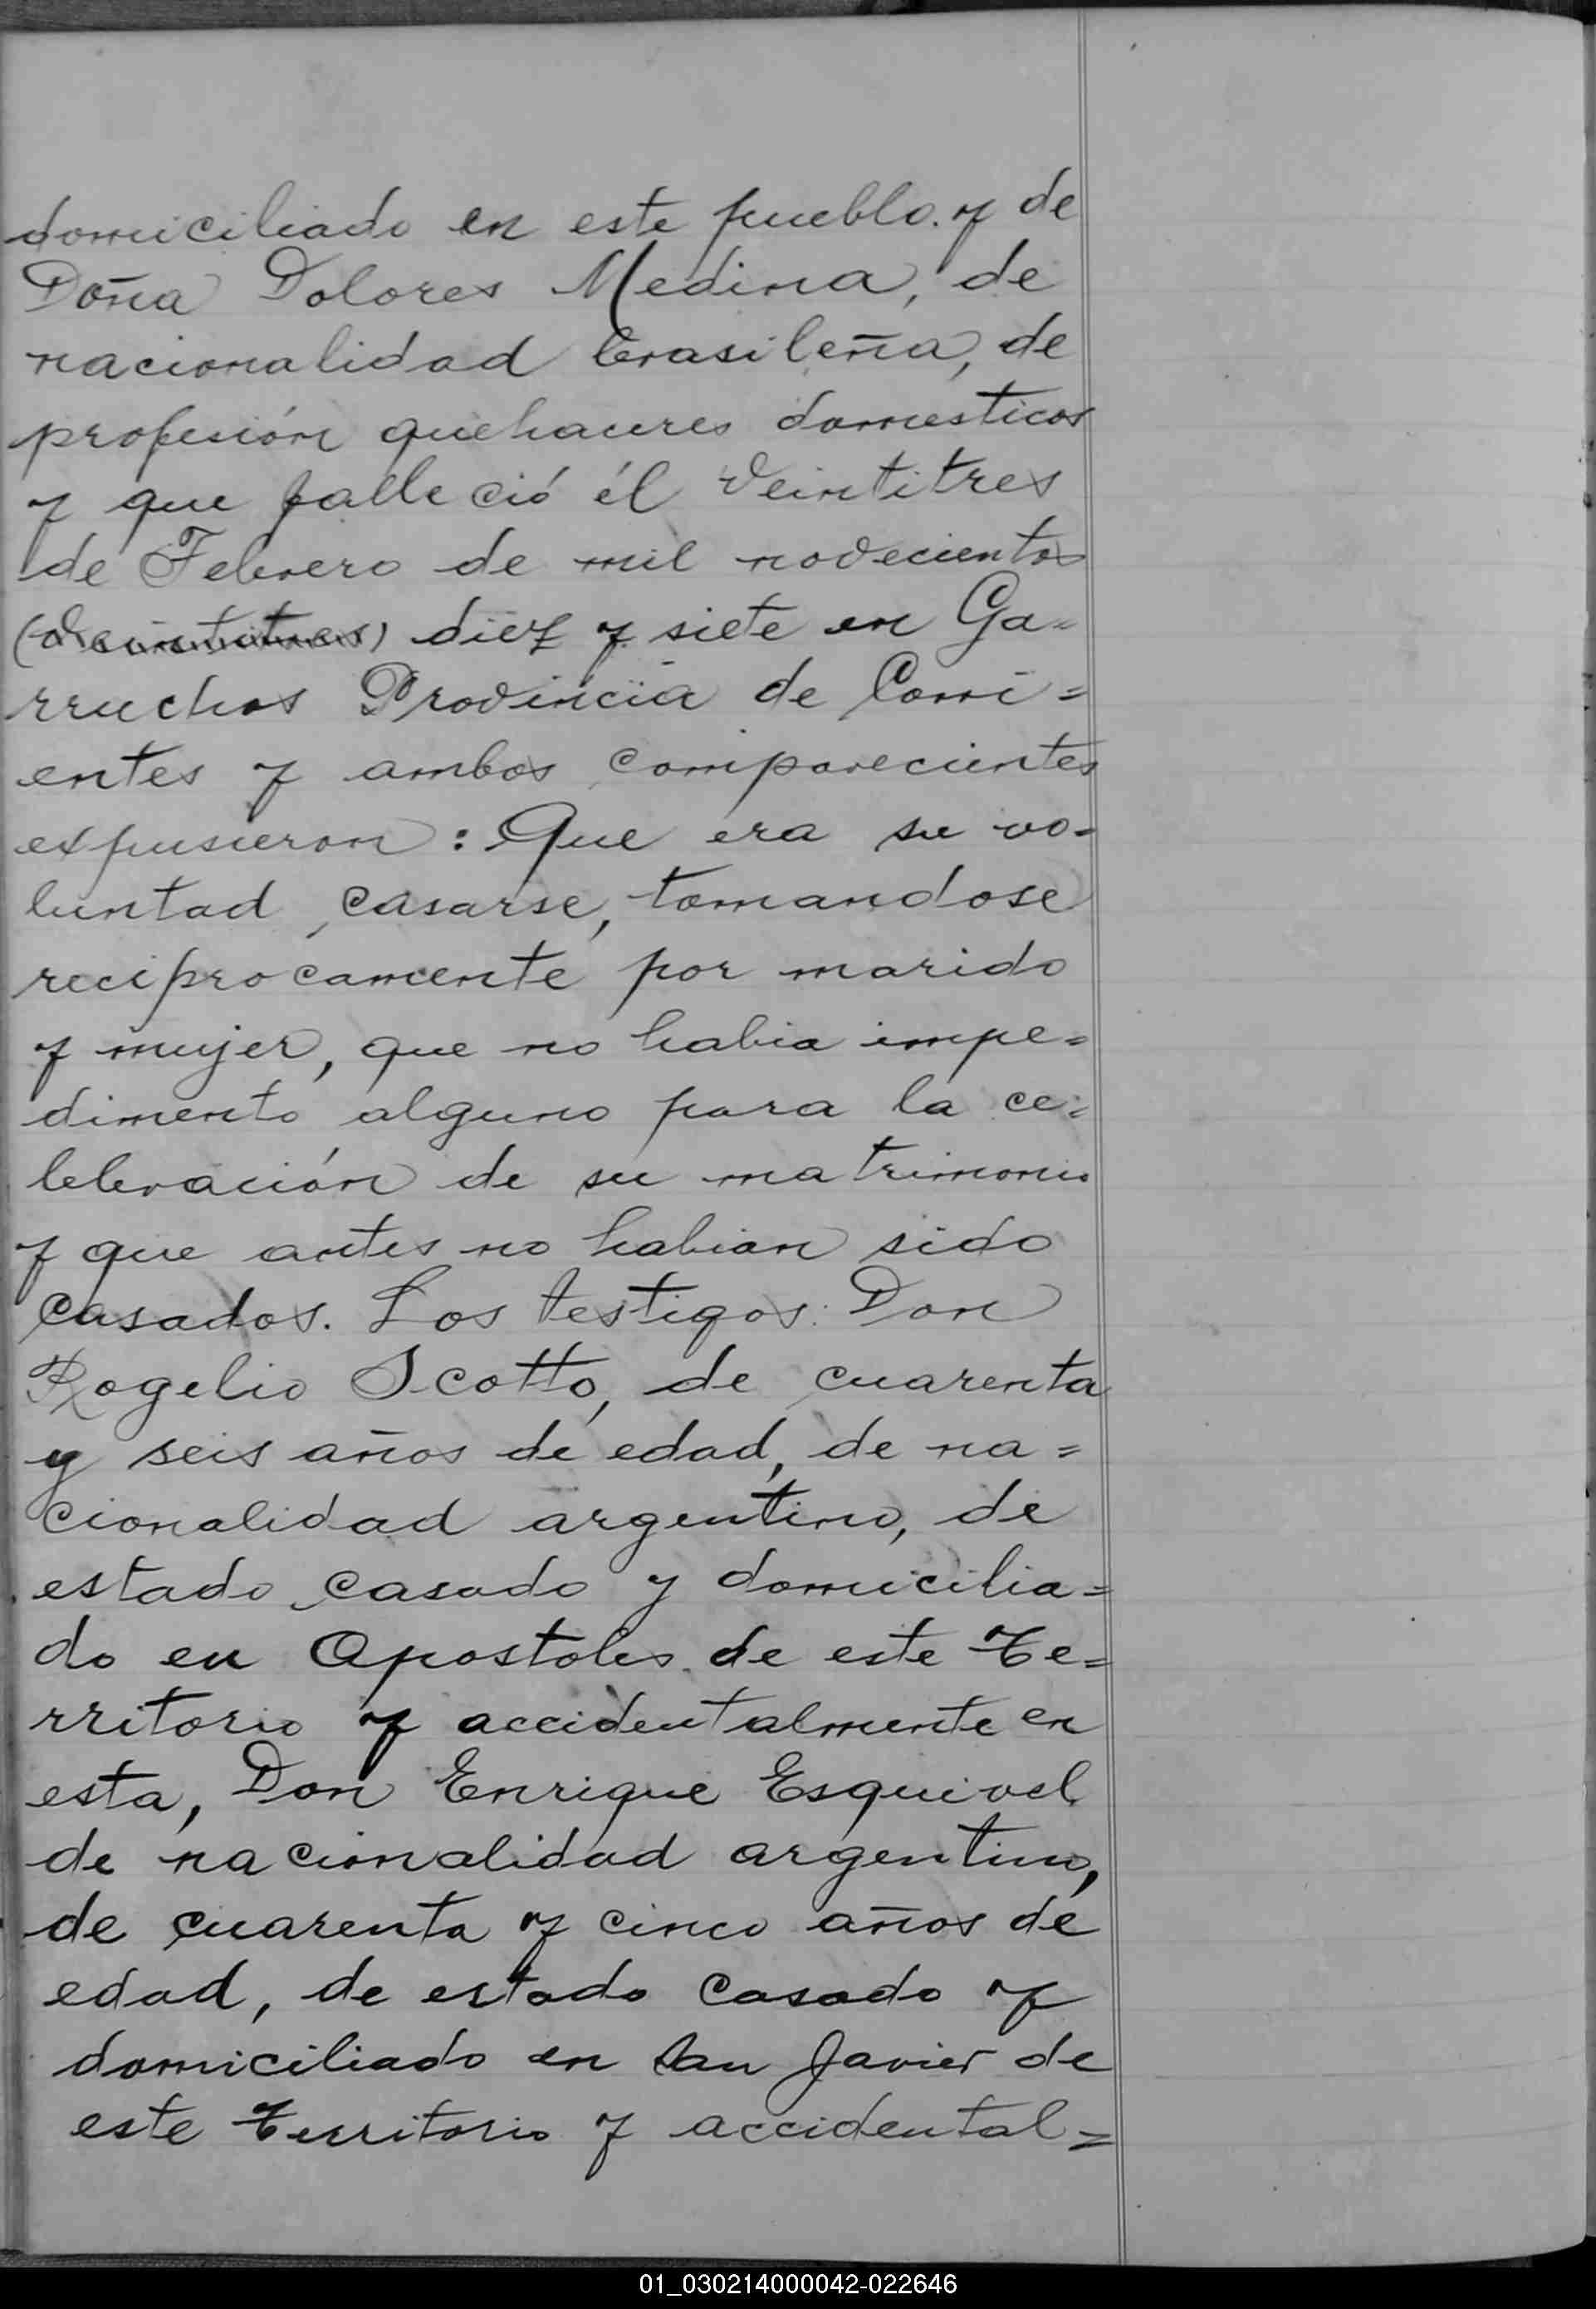 domiciliado en este pueblo. y de
Doña Dolores Medina, de
nacionalidad brasileña, de
profesión quehaceres domesticos
y que falleció él veintitres
de Febrero de mil novecientos
(veintitres) diez y siete en Ga=
rruchos Provincia de Corri=
entes y ambos comparecientes
expusieron: Que era su vo=
luntad, casarse, tomandose
reciprocamente por marido
y mujer, que no habia impe=
dimento alguno para la ce=
lebración de su matrimonio
y que antes no habian sido
casados. Los testigos: Don
Rogelio Scotto, de cuarenta
y seis años de edad, de na=
cionalidad argentino, de
estado casado y domicilia=
do en Apostoles de este Te=
rritorio y accidentalmente en
esta, Don Enrique Esquivel
de nacionalidad argentino,
de cuarenta y cinco años de
edad, de estado casado y
domiciliado en San Javier de
este Territorio y accidental=
01_030214000042-022646